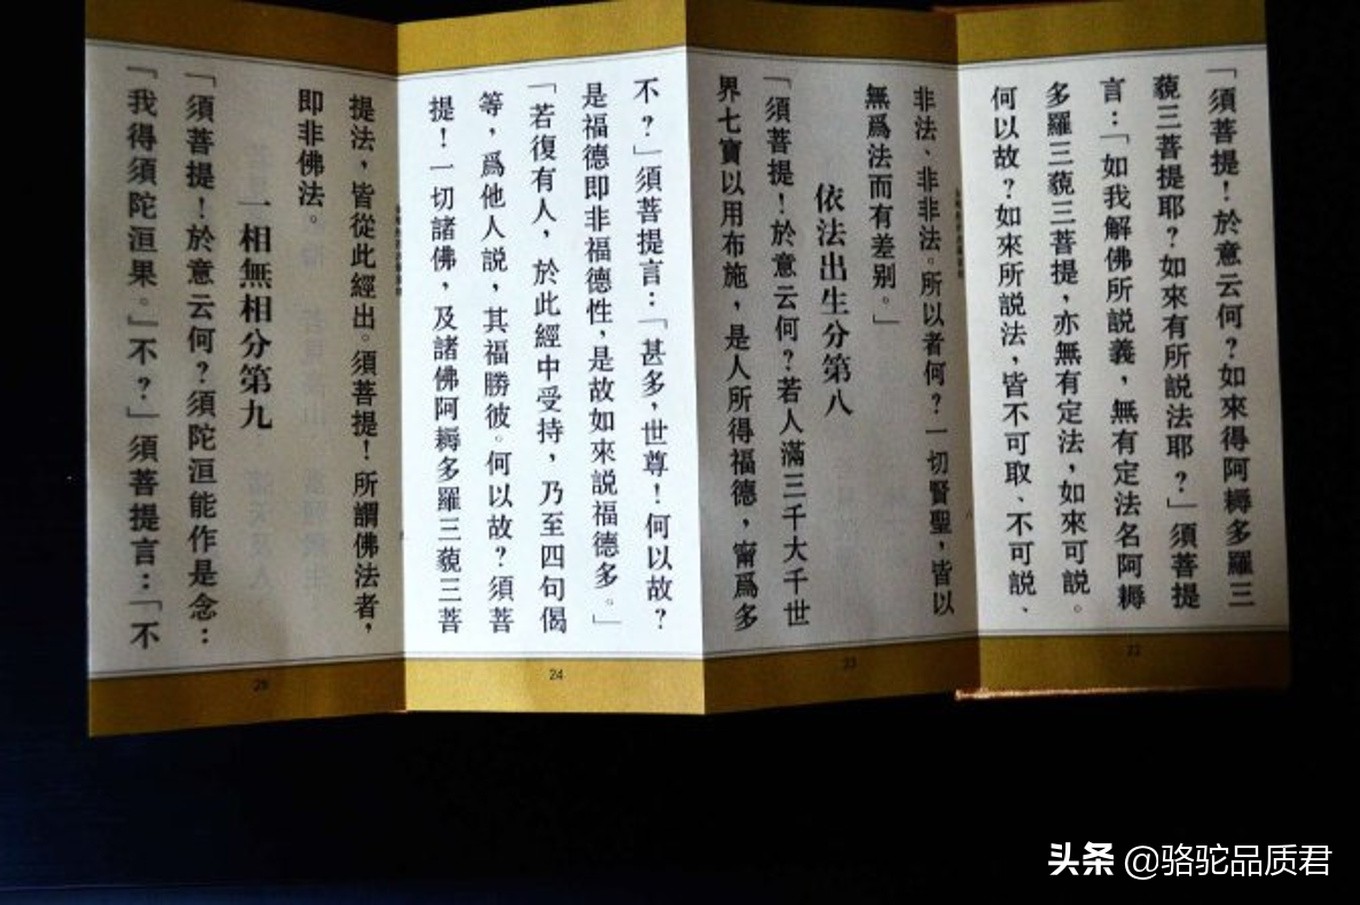 「須菩提！於意云何？如來得阿耨多羅三
藐三菩提耶？如來有所説法耶？」須菩提
言：「如我解佛所説義，無有定法名阿耨
多羅三藐三菩提，亦無有定法，如來可説。
何以故？如來所説法，皆不可取、不可説、
22
非法、非非法。所以者何？一切賢聖，皆以
無爲法而有差别。」
依法出生分第八
「須菩提！於意云何？若人滿三千大千世
界七寶以用布施，是人所得福德，甯爲多
23
不？」須菩提言：「甚多，世尊！何以故？
是福德即非福德性，是故如來説福德多。」
「若復有人，於此經中受持，乃至四句偈
等，爲他人説，其福勝彼。何以故？須菩
提！一切諸佛，及諸佛阿耨多羅三藐三菩
24
提法，皆從此經出。須菩提！所謂佛法者，
即非佛法。
一相無相分第九
「須菩提！於意云何？須陀洹能作是念：
「我得須陀洹果。」不？」須菩提言：「不
25
头条 @骆驼品质君